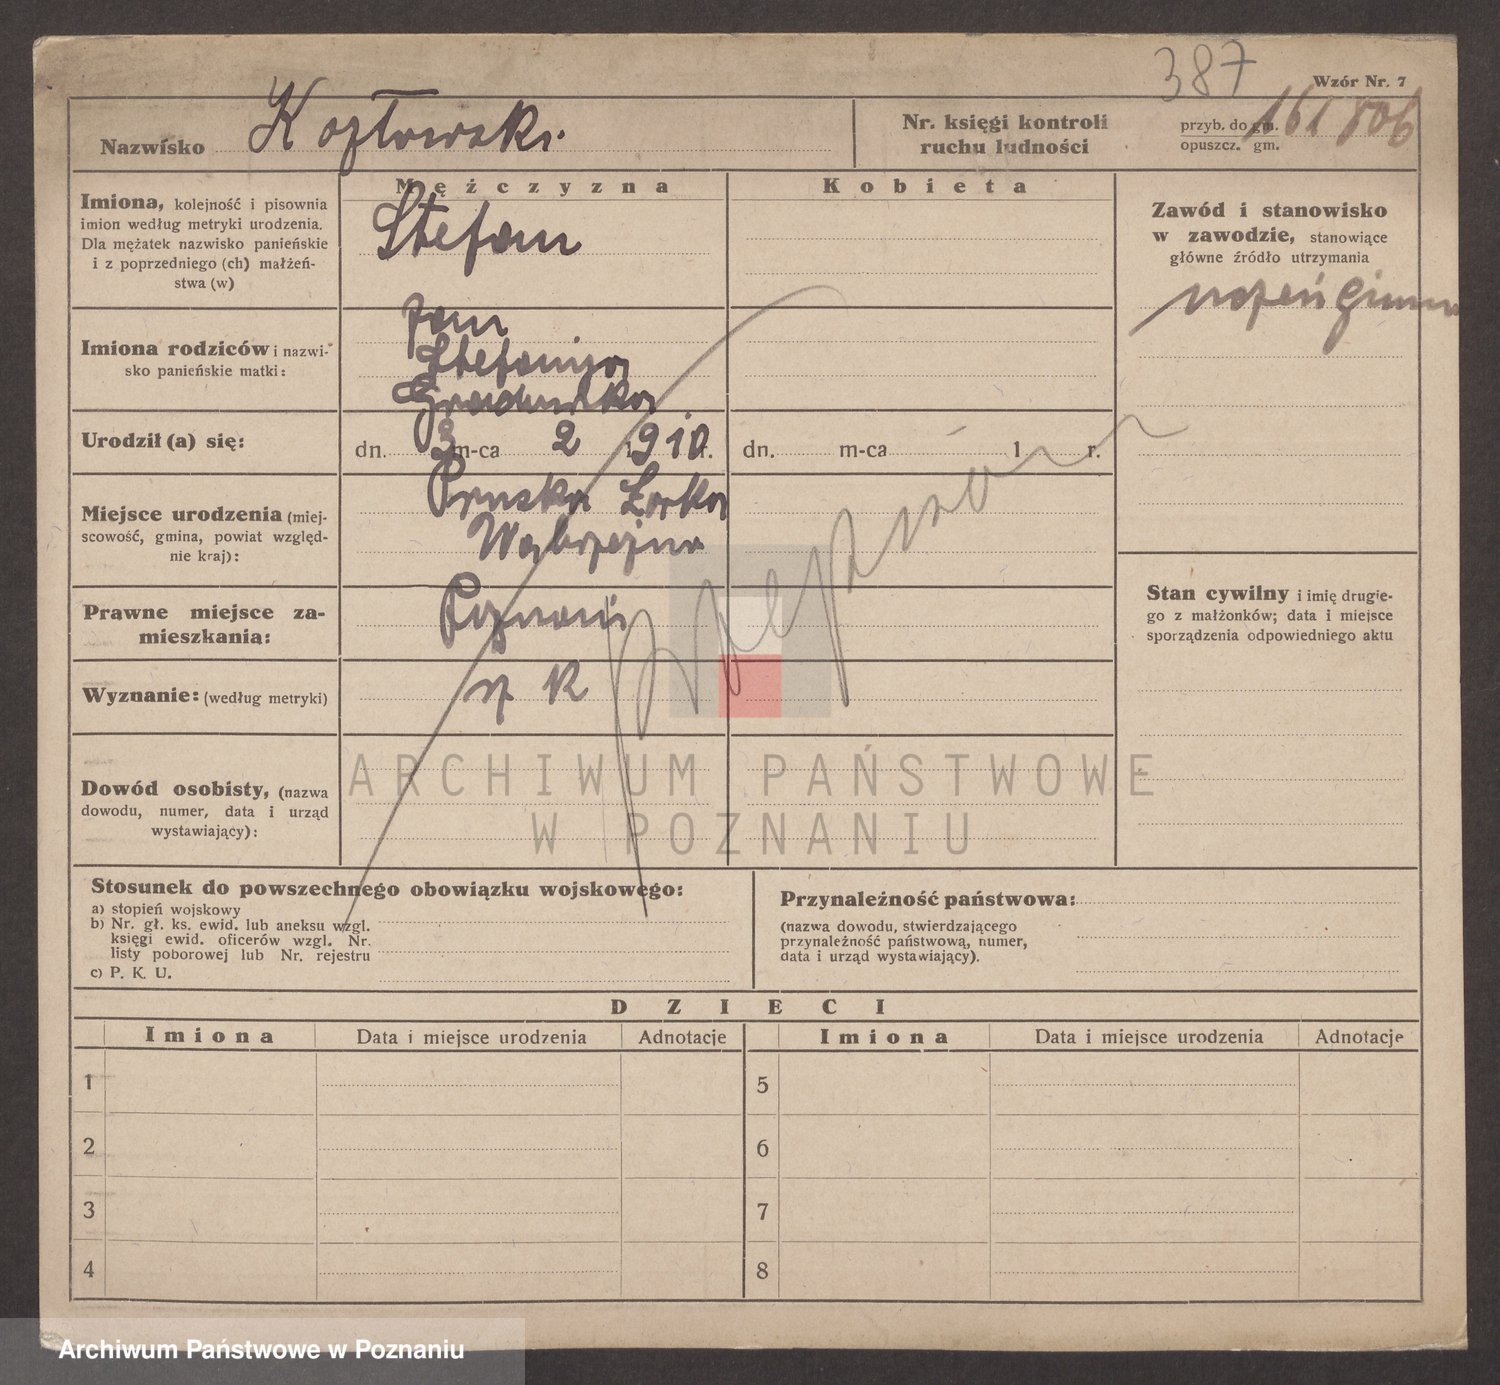 387
Wzór Nr. 7
Nazwisko Kozłowski
Nr. księgi kontroli
ruchu ludności
przyb. do gm. 161 806
opuszcz. gm.
Mężczyzna
Kobieta
Imiona, kolejność i pisownia
imion według metryki urodzenia.
Dla mężatek nazwisko panieńskie
i z poprzedniego (ch) małżeń-
stwa (w)
Stefan
Zawód i stanowisko
w zawodzie, stanowiące
główne źródło utrzymania
uczeń gimn
Imiona rodziców i nazwi-
sko panieńskie matki:
Jan
Stefanija
Urodził (a) się:
dn. 3 m-ca 2 1910 r.
dn. m-ca 1 r.
Miejsce urodzenia (miej-
scowość, gmina, powiat wzglę-
dnie kraj):
Pruska Łąka
Wąbrzeźno
Prawne miejsce za-
mieszkania:
Poznań
Stan cywilny i imię drugie-
go z małżonków; data i miejsce
sporządzenia odpowiedniego aktu
Wyznanie: (według metryki)
rz K
Dowód osobisty, (nazwa
dowodu, numer, data i urząd
wystawiający):
ARCHIWUM PAŃSTWOWE
W POZNANIU
Stosunek do powszechnego obowiązku wojskowego:
a) stopień wojskowy
b) Nr. gł. ks. ewid. lub aneksu wzgl.
księgi ewid. oficerów wzgl. Nr.
listy poborowej lub Nr. rejestru
c) P. K. U.
Przynależność państwowa:
(nazwa dowodu, stwierdzającego
przynależność państwową, numer,
data i urząd wystawiający).
DZIECI
Imiona Data i miejsce urodzenia Adnotacje
Imiona Data i miejsce urodzenia Adnotacje
1
5
2
6
3
7
4
8
Archiwum Państwowe w Poznaniu